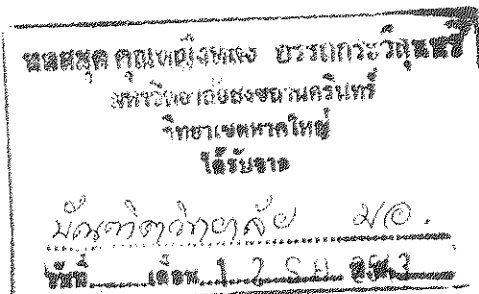 หอสมุด คุณหญิงหลง อรรถกระวีสุนทร
มหาวิทยาลัยสงขลานครินทร์
วิทยาเขตหาดใหญ่
ได้รับจาก
บัณฑิตวิทยาลัย มอ.
วันที่ เดือน 1 2